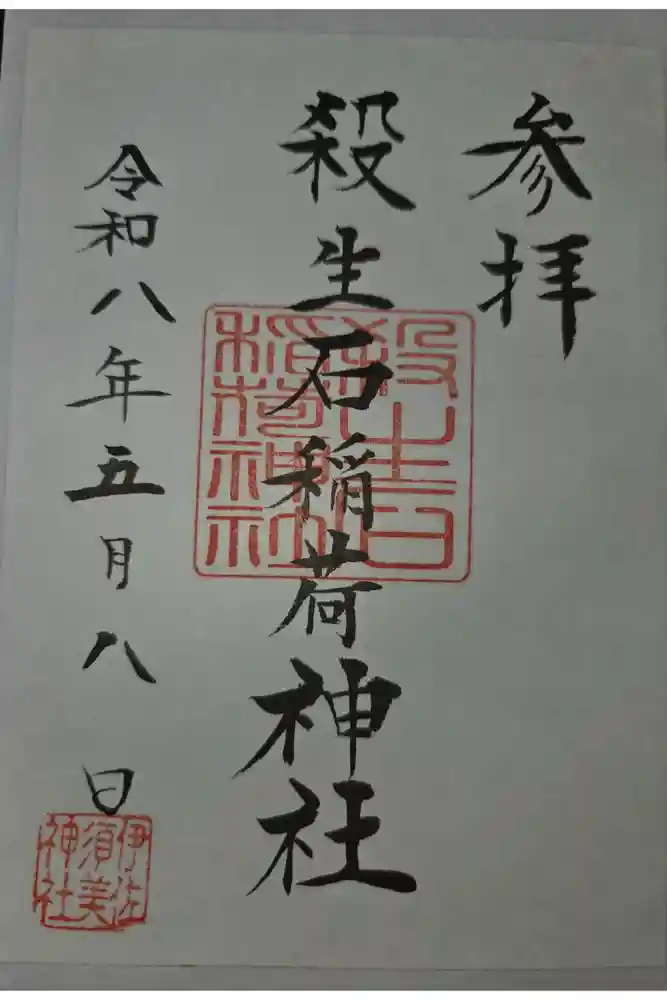 参拝
殺生石稲荷神社
令和八年五月八日
殺生石
稲荷神社
伊佐
須美
神社